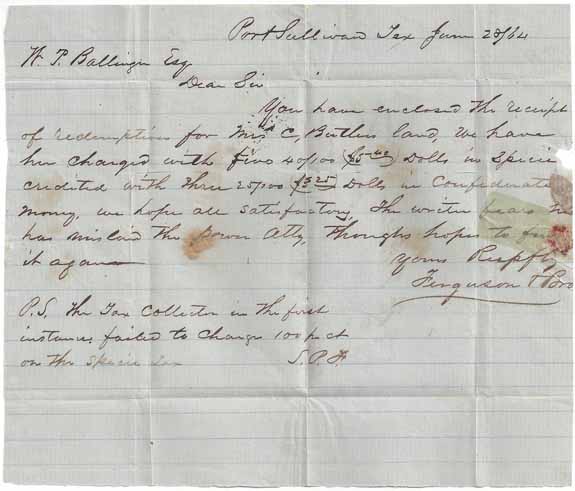 Port Sullivan Tex June 28/64
W. P. Ballinger Esq
Dear Sir
You have enclosed the receipt
of redemption for Mrs C, Butlers land, we have
her charged with five 40/100 $5.40 Dolls in Specie
credited with three 25/100 $3.25 Dolls in Confederate
money, we hope all satisfactory. The writer fears he
has mislaid the Power Atty, though hopes to find
it again
Yours Respfly
Ferguson & Bro
P.S. The Tax Collector in the first
instance failed to charge 100 pr ct
on the Specie Tax
S.P.F.